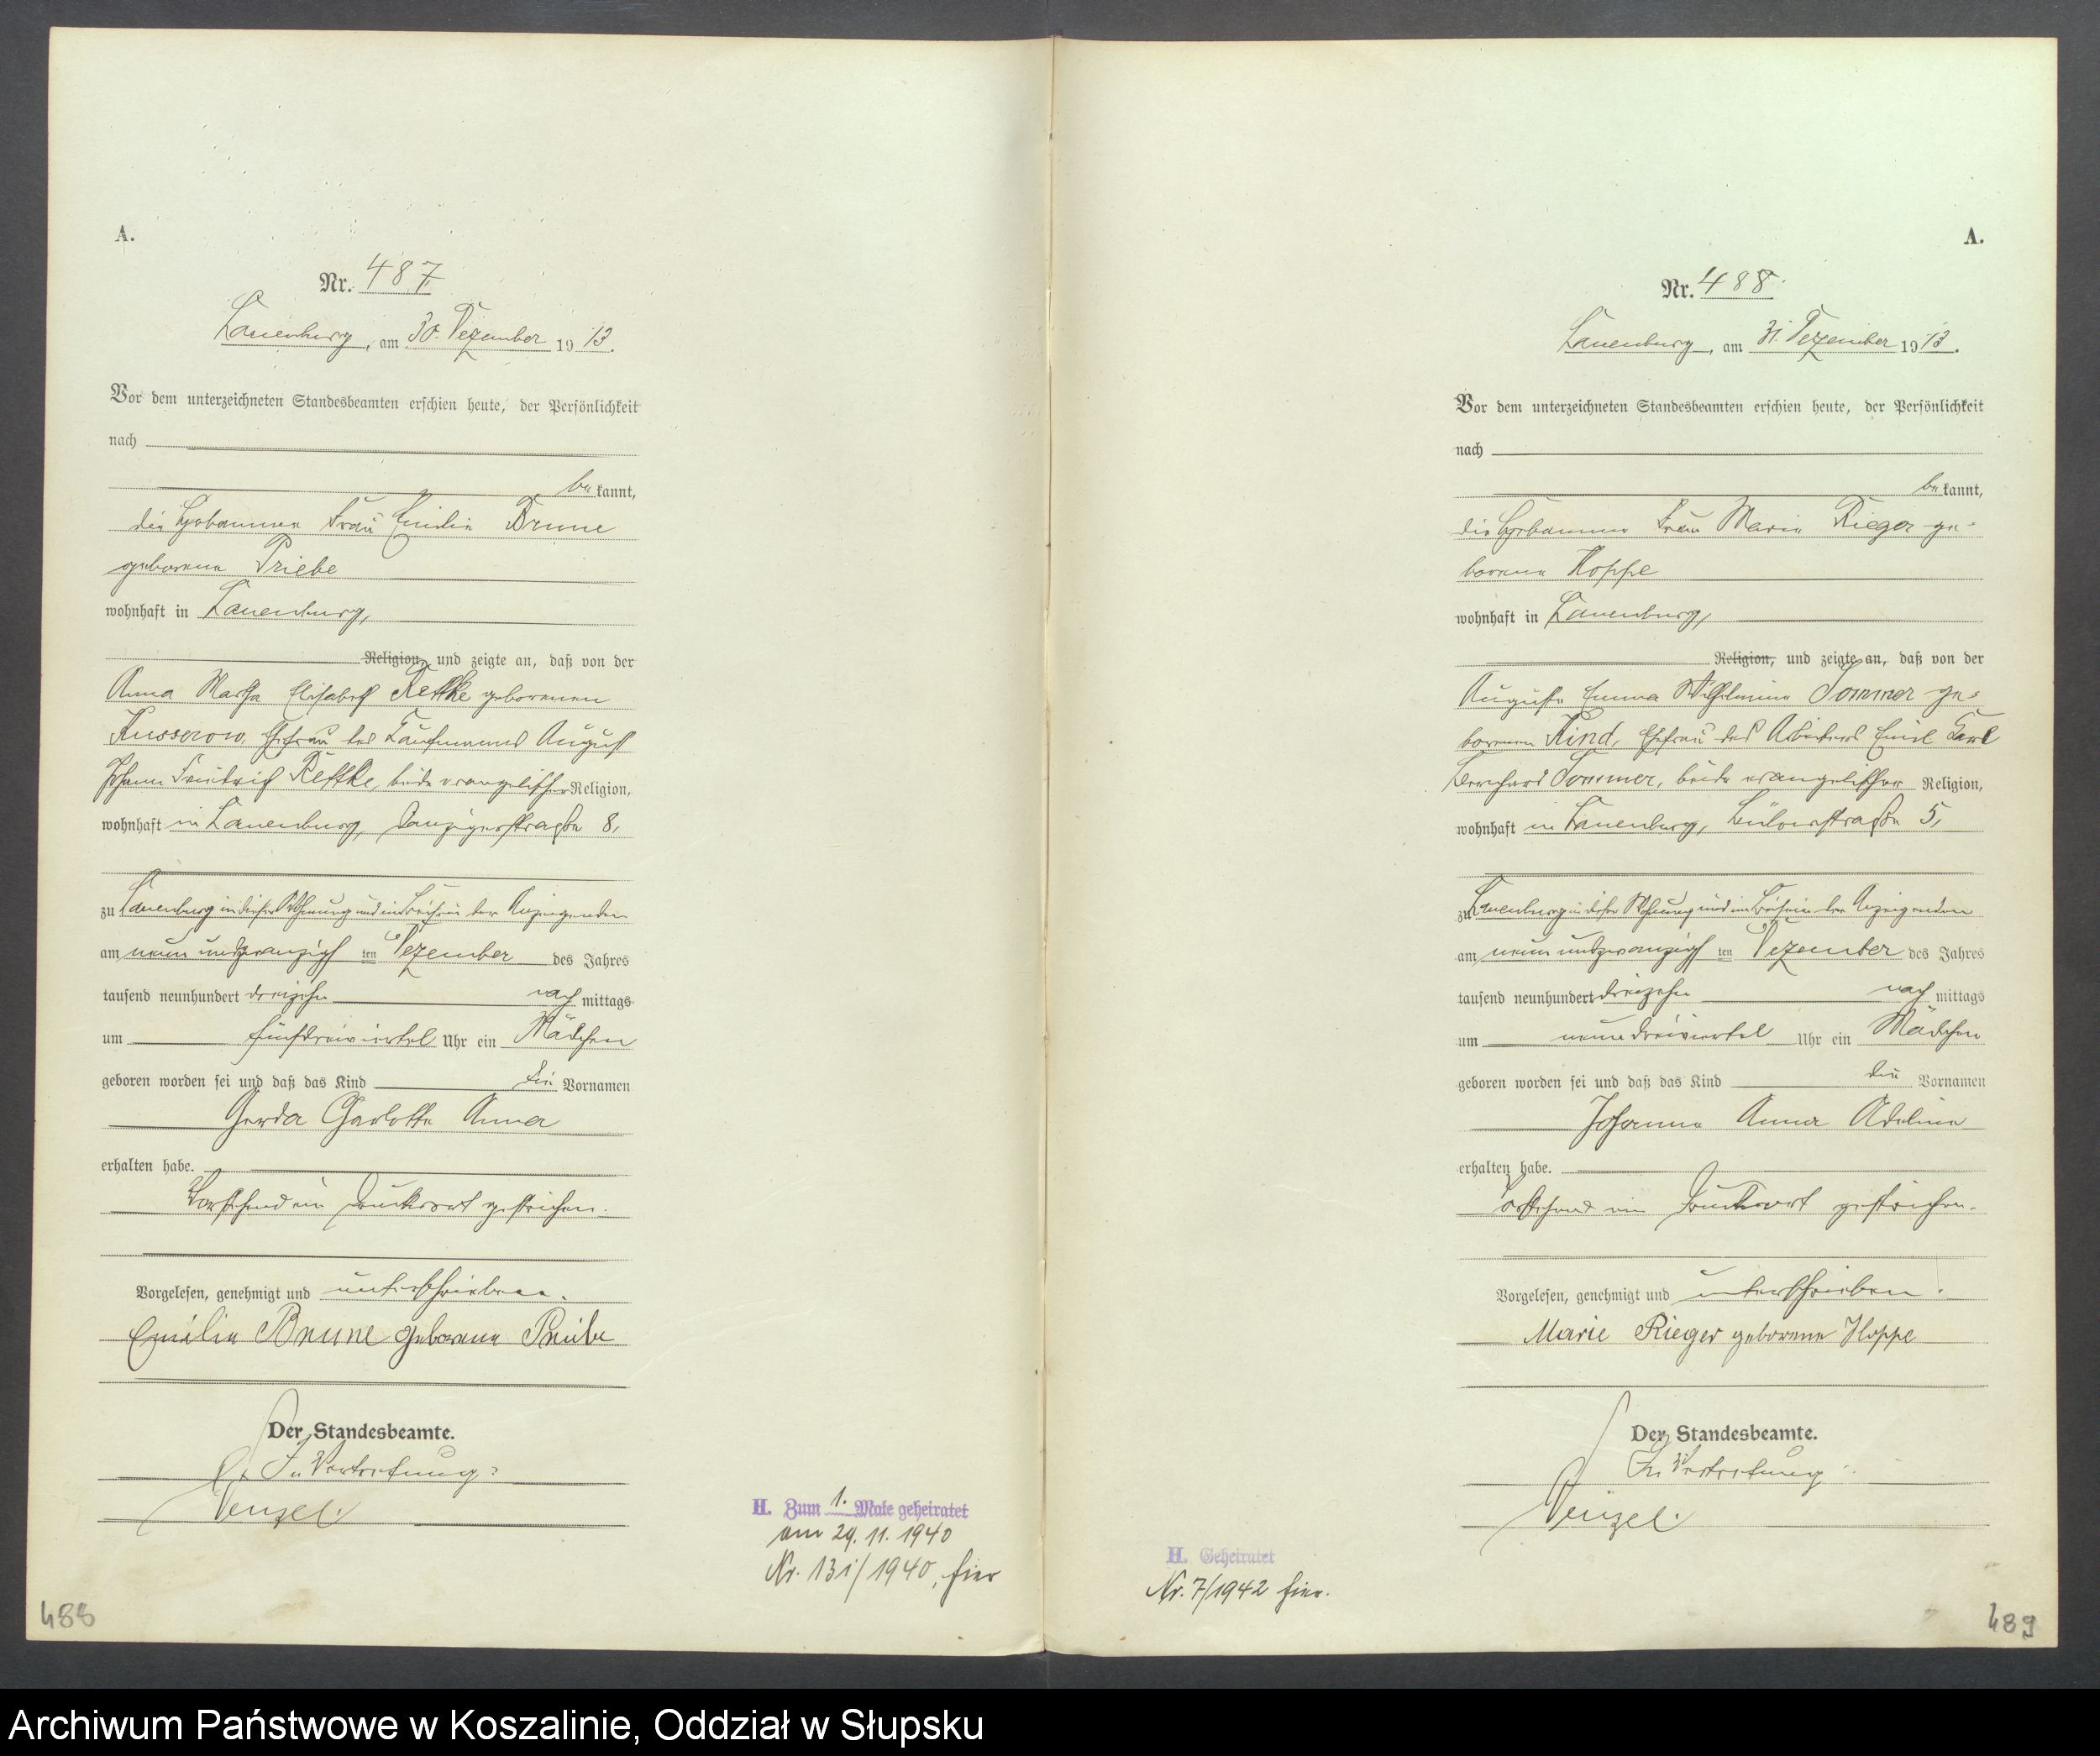 A.
Nr. 487
Lauenburg, am 30. Dezember 1913.
Vor dem unterzeichneten Standesbeamten erschien heute, der Persönlichkeit
nach
bekannt,
die Hebamme Frau Emilie Brune
geborene Priebe
wohnhaft in Lauenburg,
Religion, und zeigte an, daß von der
Anna Martha Elisabeth Rettke geborenen
Kusserow, Ehefrau des Kaufmanns August
Johann Friedrich Rettke, beide evangelischer Religion,
wohnhaft in Lauenburg, Danzigerstraße 8,
zu Lauenburg in dieser Wohnung und im Beisein der Anzeigenden
am neun und zwanzigsten Dezember des Jahres
tausend neunhundert dreizehn nachmittags
um fünfdreiviertel Uhr ein Mädchen
geboren worden sei und daß das Kind die Vornamen
Gerda Charlotte Anna
erhalten habe.
Vorstehend ein Druckwort gestrichen.
Vorgelesen, genehmigt und unterschrieben.
Emilie Brune geborene Priebe
Der Standesbeamte.
In Vertretung:
Venzel.
H. Zum 1. Male geheiratet
am 29. 11. 1940
Nr. 131/1940, hier
488
A.
Nr. 488.
Lauenburg, am 31. Dezember 1913.
Vor dem unterzeichneten Standesbeamten erschien heute, der Persönlichkeit
nach
bekannt,
die Hebamme Frau Marie Rieger ge-
borene Hoppe
wohnhaft in Lauenburg,
Religion, und zeigte an, daß von der
Auguste Emma Wilhelmine Sommer ge-
borenen Kind, Ehefrau des Arbeiters Emil Karl
Bernhard Sommer, beide evangelischer Religion,
wohnhaft in Lauenburg, Bülowstraße 5,
zu Lauenburg in dieser Wohnung und im Beisein der Anzeigenden
am neun und zwanzigsten Dezember des Jahres
tausend neunhundert dreizehn nachmittags
um neundreiviertel Uhr ein Mädchen
geboren worden sei und daß das Kind die Vornamen
Johanna Anna Adeline
erhalten habe.
Vorstehend ein Druckwort gestrichen.
Vorgelesen, genehmigt und unterschrieben.
Marie Rieger geborene Hoppe
Der Standesbeamte.
In Vertretung:
Venzel.
H. Geheiratet
Nr. 7/1942 hier.
489
Archiwum Państwowe w Koszalinie, Oddział w Słupsku